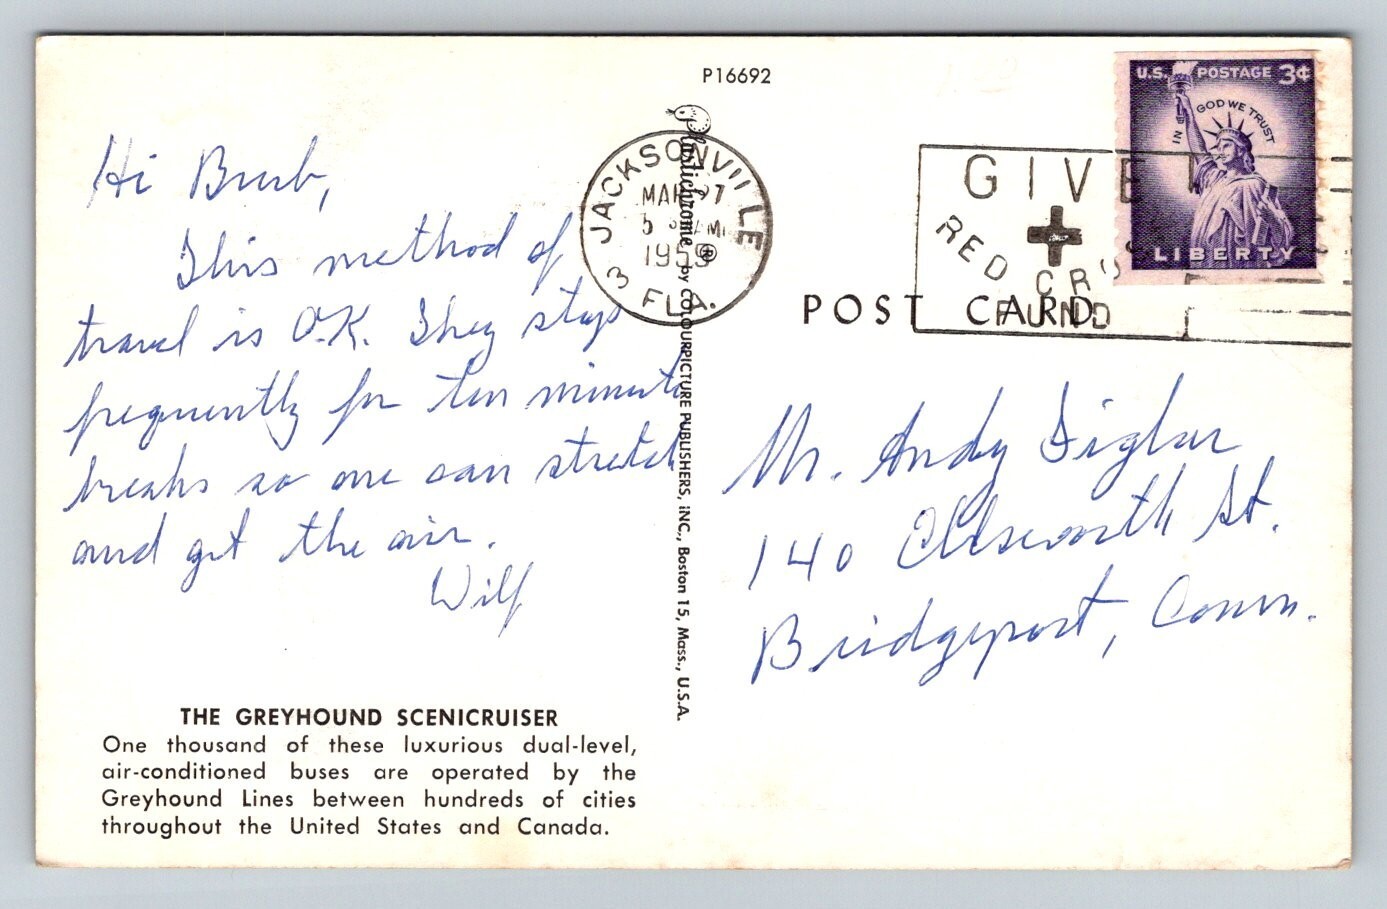 P16692
Hi Burb,
This method of
travel is O.K. They stop
frequently for ten minute
breaks so one can stretch
and get the air.
Wilf
THE GREYHOUND SCENICRUISER
One thousand of these luxurious dual-level,
air-conditioned buses are operated by the
Greyhound Lines between hundreds of cities
throughout the United States and Canada.
Plastichrome ® by COLOURPICTURE PUBLISHERS, INC., Boston 15, Mass., U.S.A.
JACKSONVILLE
MAR 27
AM
1959
3 FLA.
GIVE
RED CROSS
FUND
U.S. POSTAGE 3¢
IN GOD WE TRUST
LIBERTY
POST CARD
Mr. Andy
140 Ellsworth St.
Bridgeport, Conn.